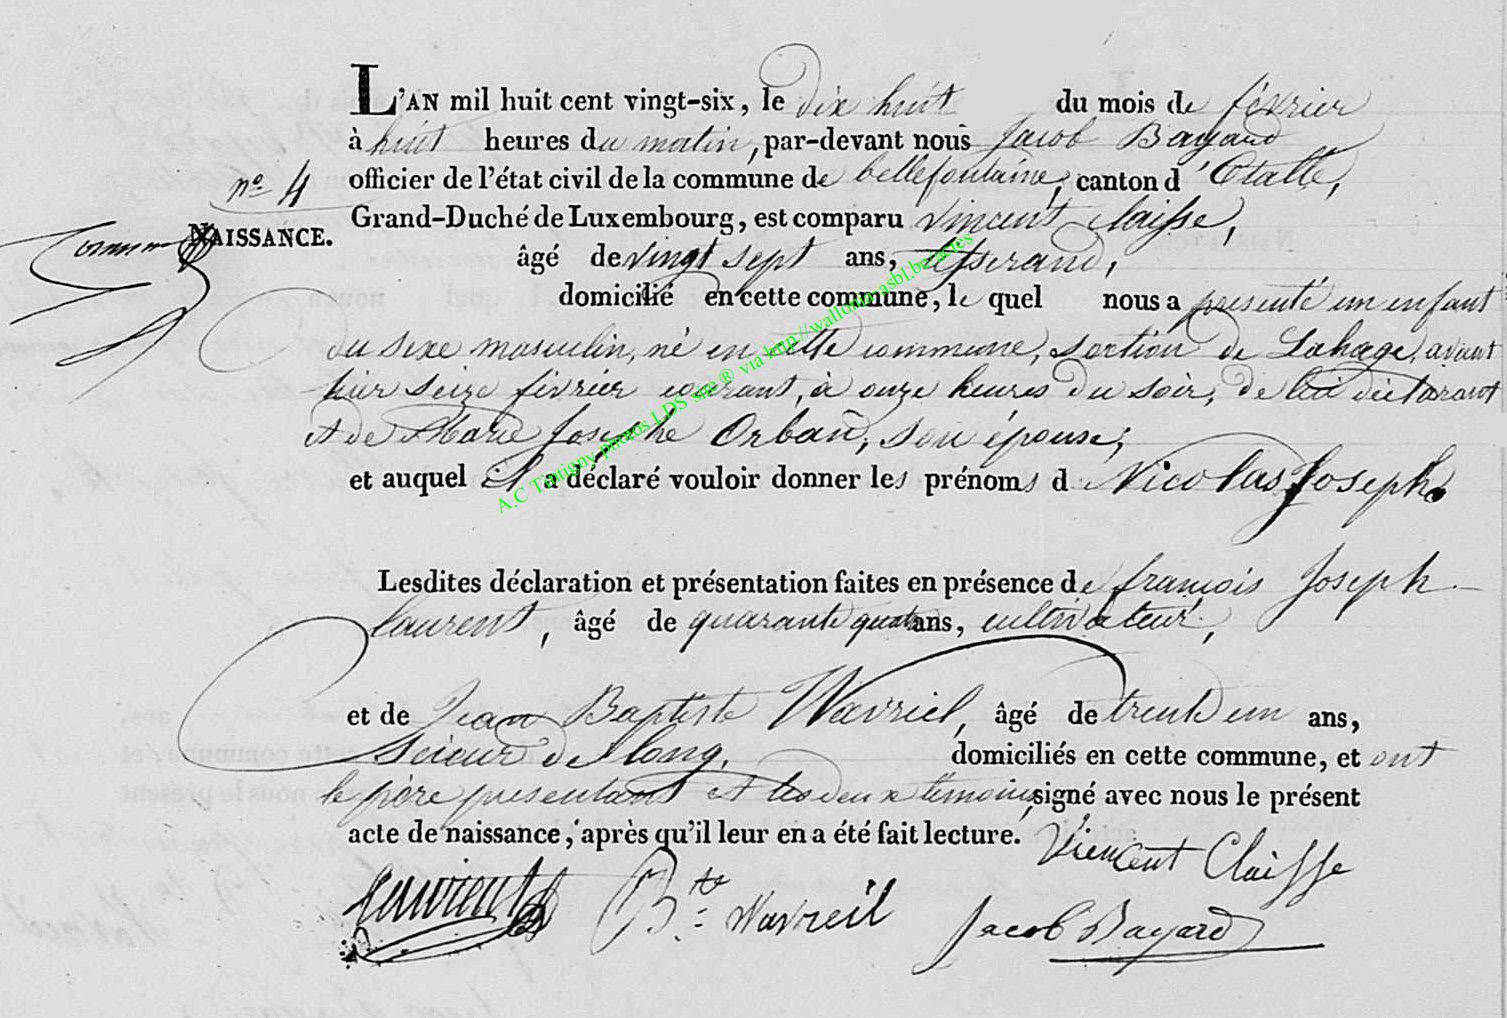 L'AN mil huit cent vingt-six, le dix huit du mois de février
à huit heures du matin, par-devant nous Jacob Bayard
n° 4
officier de l'état civil de la commune de bellefontaine, canton d'Etalle,
NAISSANCE.
Grand-Duché de Luxembourg, est comparu vincent claisse,
âgé de vingt sept ans, tisserand,
domicilié en cette commune, le quel nous a presenté un enfant
du sexe masculin, né en cette commune, section de Lahage, avant
hier seize février courant, à onze heures du soir, de lui déclarant
et de Marie Josephe Orban, son épouse,
et auquel il a déclaré vouloir donner les prénoms d Nicolas Joseph.
A.C Tintigny photos LDS site ® via http//wallonica
Lesdites déclaration et présentation faites en présence de françois Joseph
laurent, âgé de quarante quatre ans, cultivateur,
et de Jean Baptiste Wavriel, âgé de trente un ans,
Scieur de long, domiciliés en cette commune, et ont
le père presentant et les deux temoins signé avec nous le présent
acte de naissance, après qu'il leur en a été fait lecture.
Viencent Claisse
Laurient
Bte Wavreil
Jacob Bayard